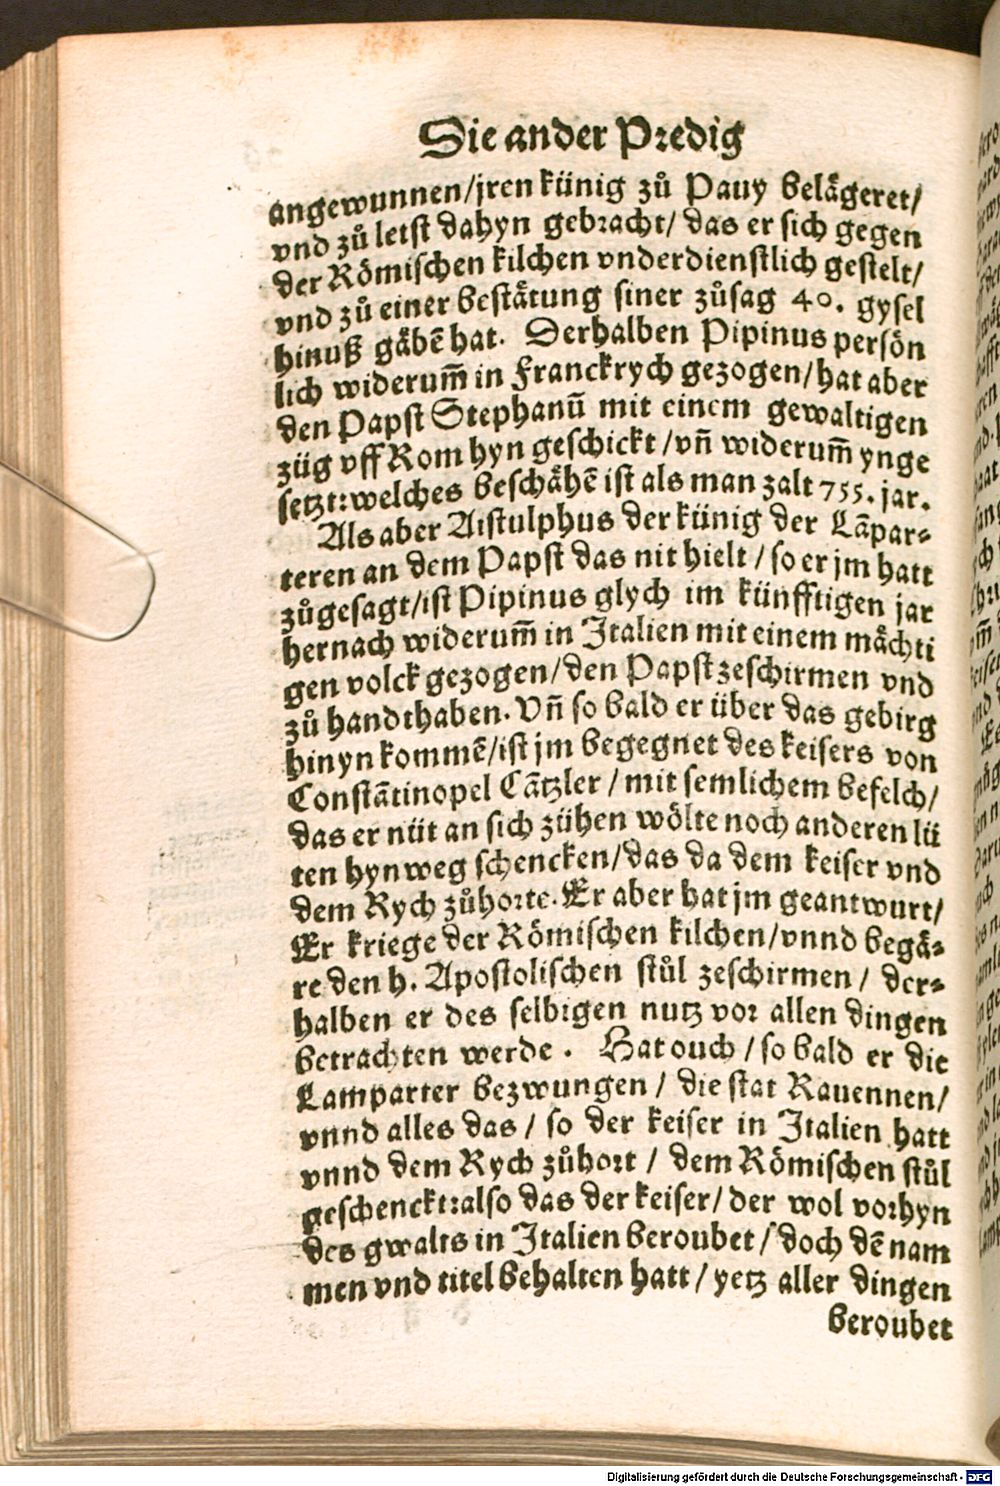 Die ander Predig
angewunnen/jren künig zů Pauy belägeret/
vnd zů letst dahyn gebracht/ das er sich gegen
der Römischen kilchen vnderdienstlich gestelt/
vnd zů einer bestätung siner zůsag 40. gysel
hinuß gäbē hat. Derhalben Pipinus persön
lich widerum̄ in Franckrych gezogen/hat aber
den Papst Stephanū mit einem gewaltigen
züg vff Rom hyn geschickt/vn̄ widerum̄ ynge
setzt:welches beschähē ist als man zalt 755. jar.
Als aber Aistulphus der künig der Lāpar⸗
teren an dem Papst das nit hielt/so er jm hatt
zůgesagt/ist Pipinus glych im künfftigen jar
hernach widerum̄ in Italien mit einem mächti
gen volck gezogen/den Papst zeschirmen vnd
zů handthaben. Vn̄ so bald er über das gebirg
hinyn kommē/ist jm begegnet des keisers von
Constātinopel Cātzler/mit semlichem befelch/
das er nüt an sich zühen wölte noch anderen lü
ten hynweg schencken/das da dem keiser vnd
dem Rych zůhorte. Er aber hat jm geantwurt/
Er kriege der Römischen kilchen/vnnd begä⸗
re den h. Apostolischen stůl zeschirmen/ der⸗
halben er des selbigen nutz vor allen dingen
betrachten werde. Hat ouch/so bald er die
Lamparter bezwungen/ die stat Rauennen/
vnnd alles das/ so der keiser in Italien hatt
vnnd dem Rych zůhort/ dem Römischen stůl
geschenckt:also das der keiser/ der wol vorhyn
des gwalts in Italien beroubet/doch dē nam
men vnd titel behalten hatt/ yetz aller dingen
beroubet
Digitalisierung gefördert durch die Deutsche Forschungsgemeinschaft - DFG